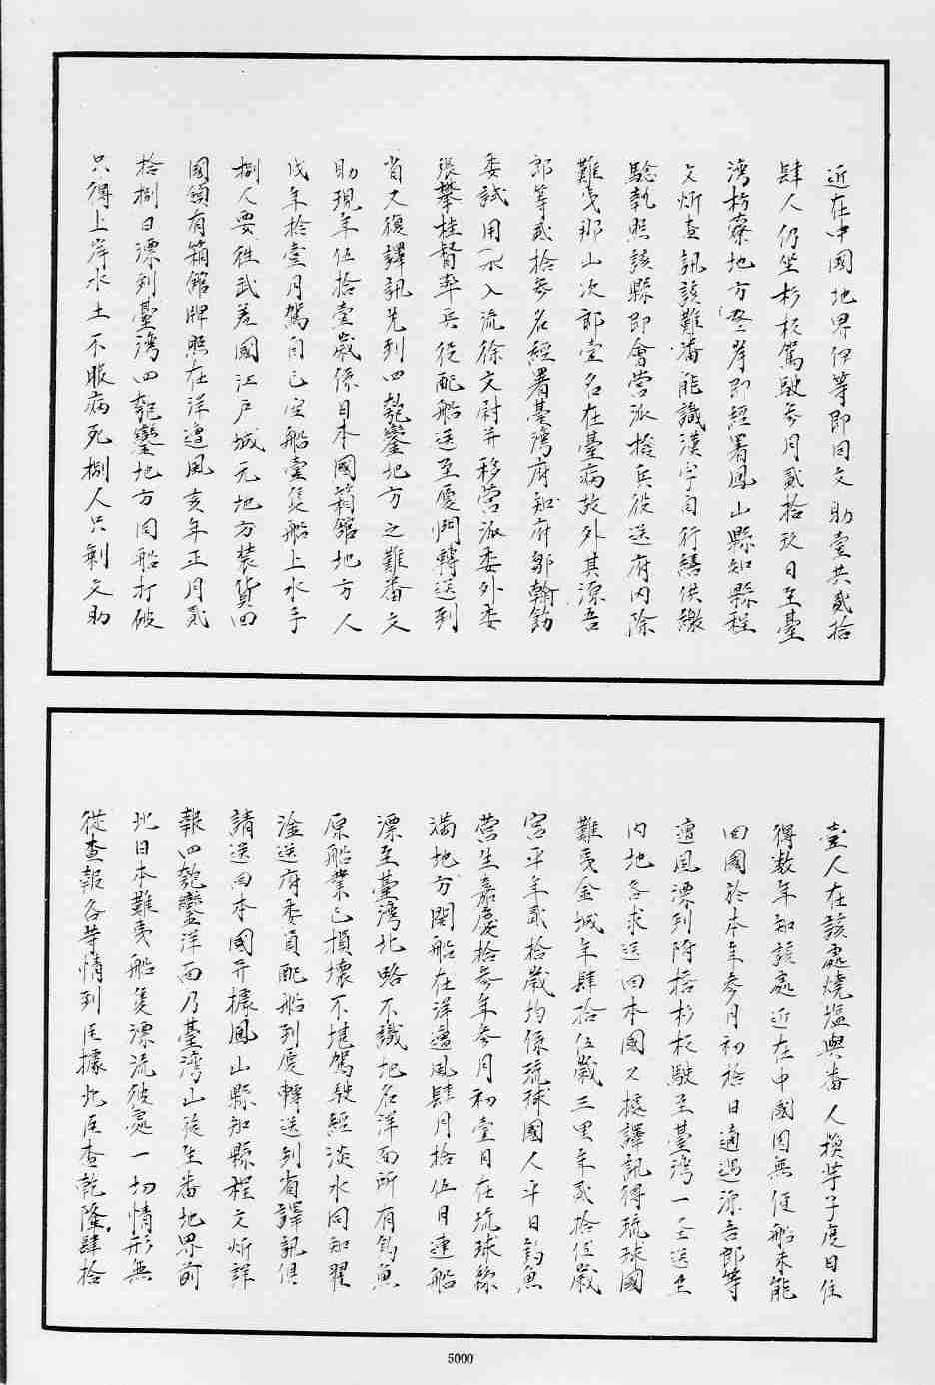 近在中國地界伊等即同文助壹共貳拾
肆人仍坐杉板駕駛叁月貳拾玖日至臺
灣枋寮地方登岸即經署鳳山縣知縣程
文炘查訊該難番能識漢字自行繕供繳
驗執照該縣即會營派撥兵役送府內除
難夷那山次郎壹名在臺病故外其源吾
郎等貳拾叁名經署臺灣府知府鄒翰飭
委試用未入流徐文尉并移營派委外委
張攀桂督率兵役配船送至廈門轉送到
省又復譯訊先到四𪹚鑾地方之難番文
助現年伍拾壹歲係日本國箱館地方人
戊年拾壹月駕自己空船壹隻船上水手
捌人要往武差國江戶城元地方裝貨回
國領有箱館牌照在洋遭風亥年正月貳
拾捌日漂到臺灣四鑾地方同船打破
只得上岸水土不服病死捌人只剩文助
壹人在該處燒塩與番人換芋子度日住
得数年知該處近在中國因無便船未能
回國於本年叁月初拾日適遇源吾郎等
遭風漂到附搭杉板駛至臺灣一仝送至
內地各求送回本國又據譯訊得琉球國
難夷金城年肆拾伍歲三里年貳拾伍歲
宮平年貳拾歲均係琉球國人平日釣魚
營生嘉慶拾叁年叁月初壹日在琉球絲
滿地方開船在洋遭風肆月拾伍日連船
漂至臺灣北路不識地名洋面所有釣魚
原船業已損壞不堪駕駛經淡水同知翟
淦送府委員配船到廈轉送到省譯訊俱
請送回本國并據鳳山縣知縣程文炘詳
報四鑾洋面乃臺灣山後生番地界前
此日本難夷船隻漂流彼處一切情形無
從查報各等情到臣據此臣查乾隆肆拾
5000